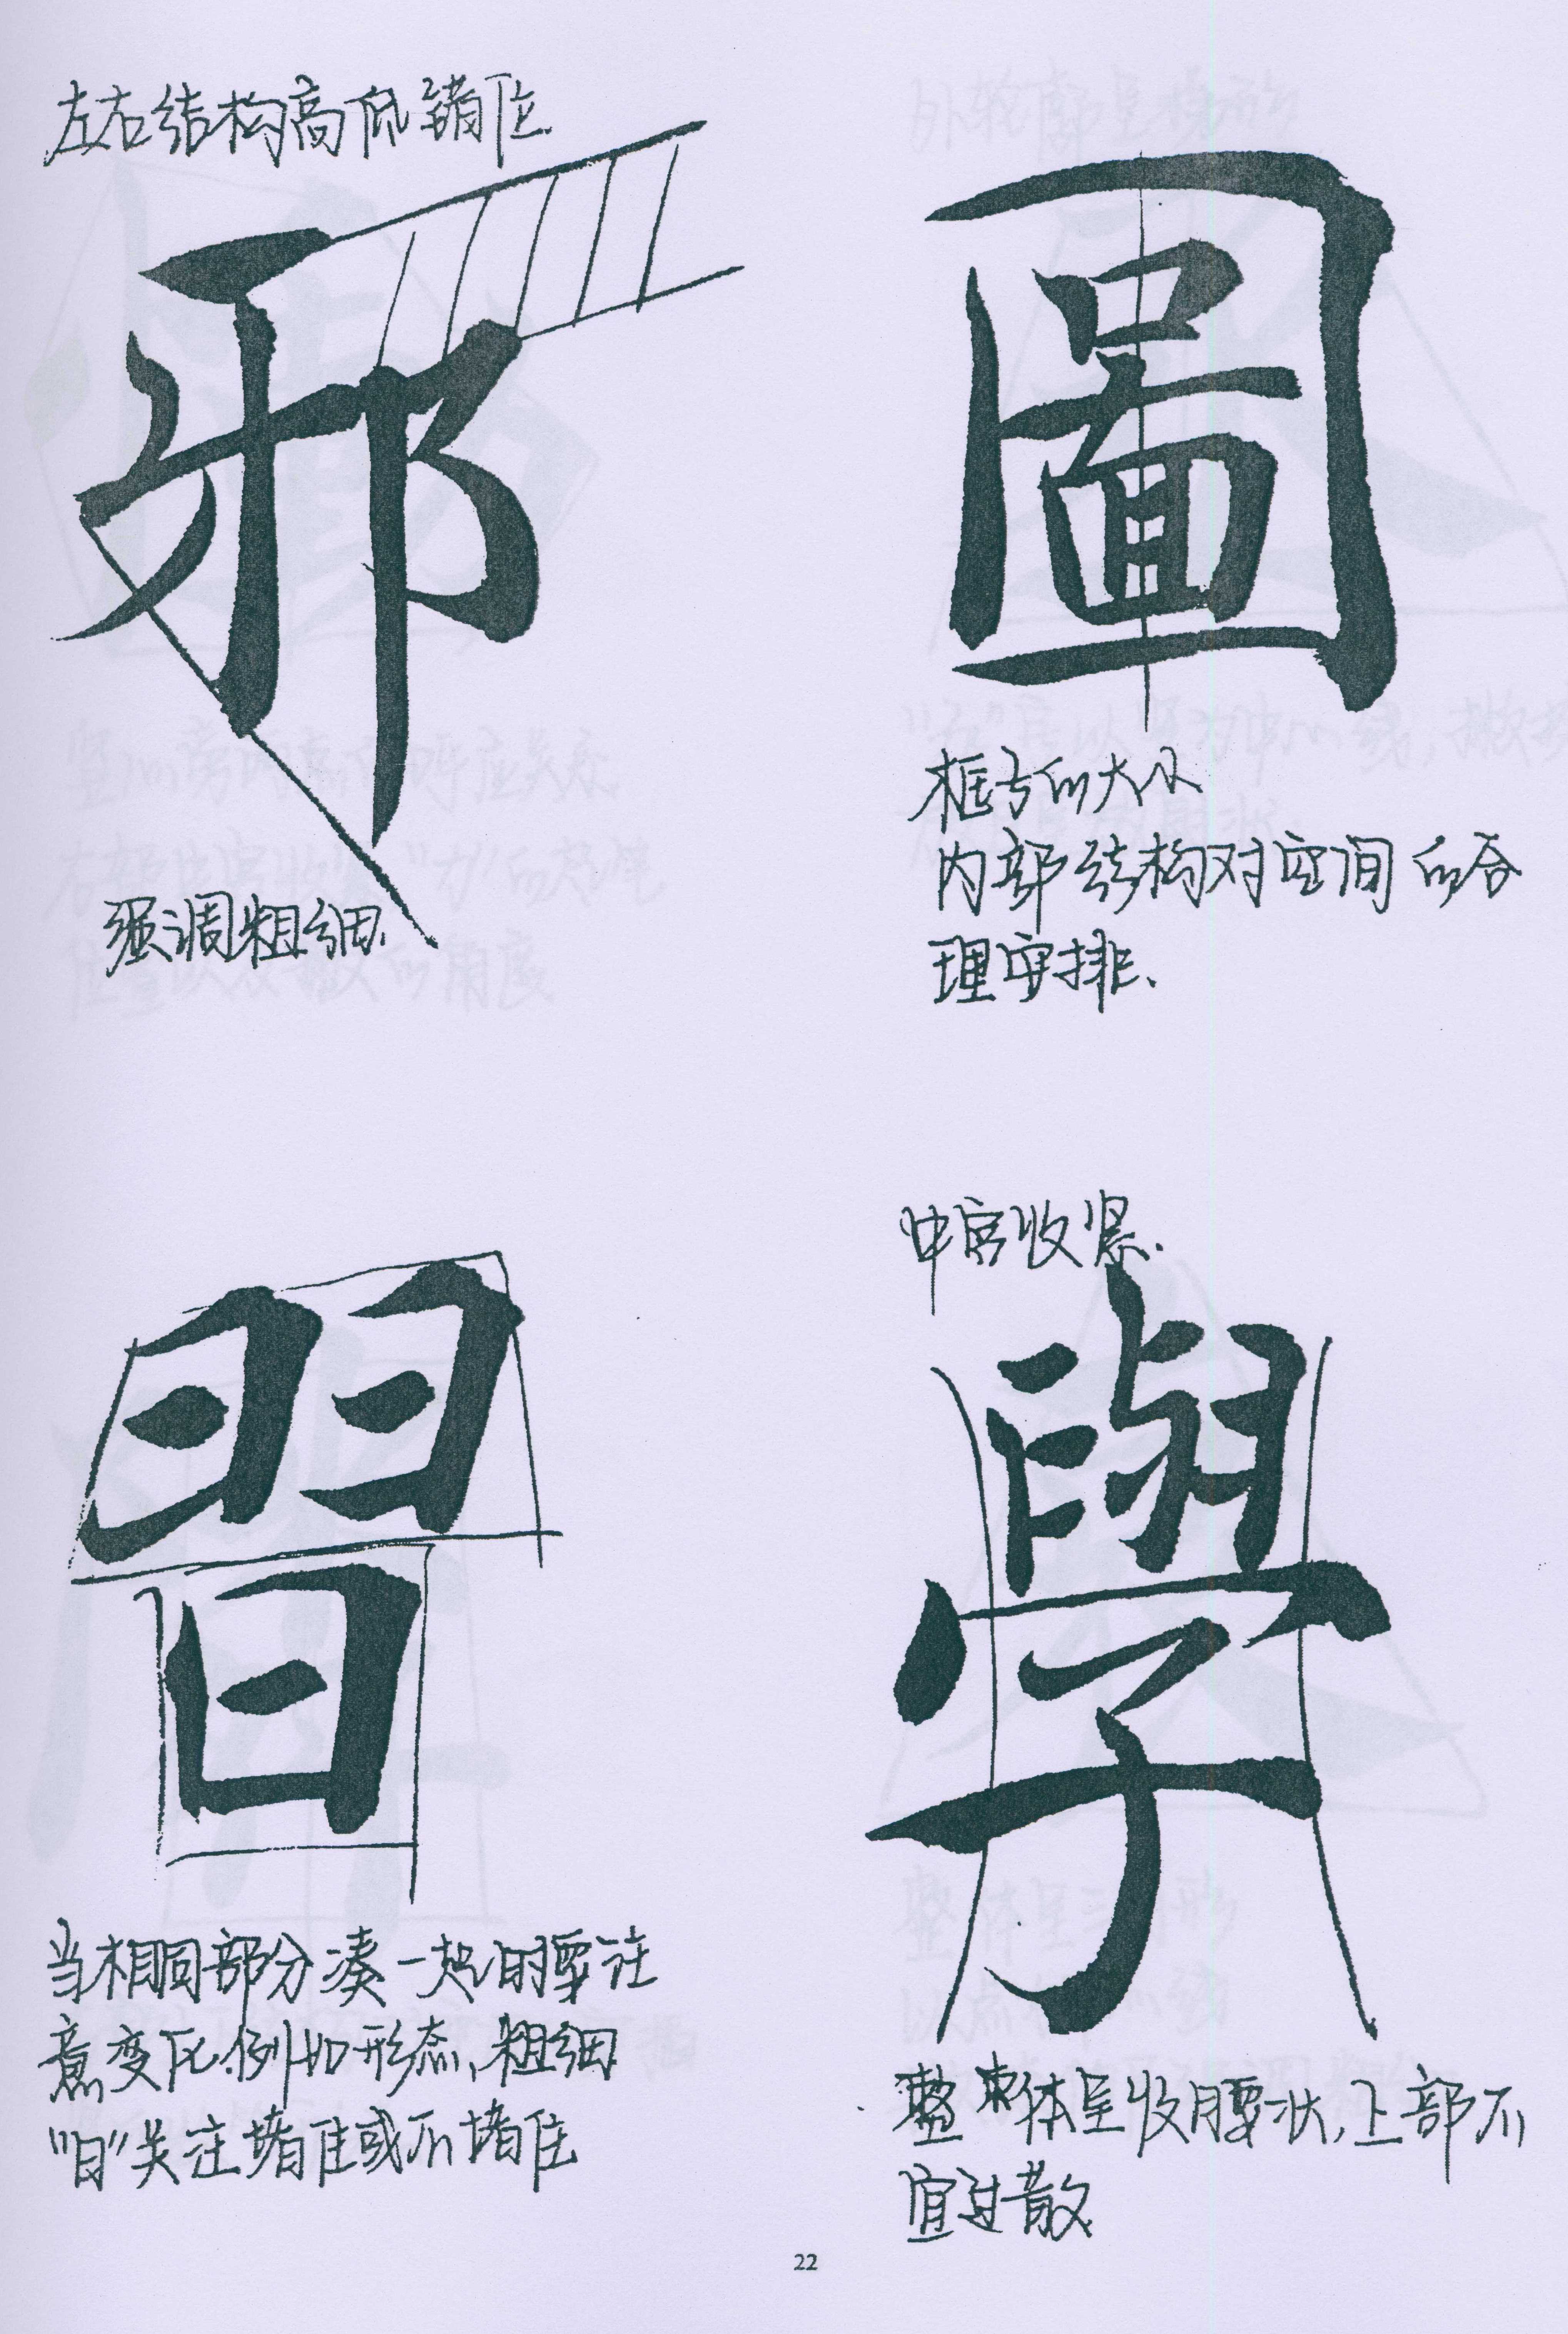 左右结构高低错位
邪
强调粗细.
圖
框与的大小
内部结构对空间的合
理安排、
習
当相同部分凑一起时要注
意变化.例如形态,粗细
"日"关注堵住或不堵住
中宫收紧.
學
整体呈收腰状,上部不
宜过散
22